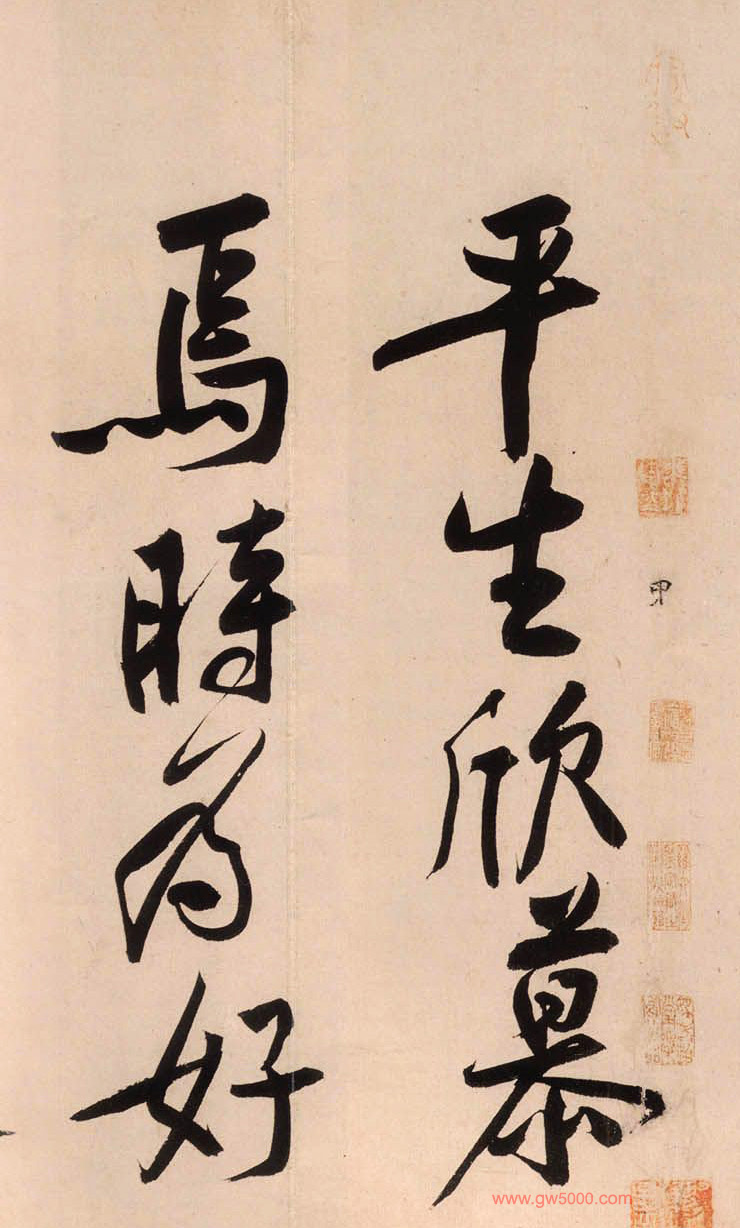 甲
平生欣慕
焉時為好
www.gw5000.com